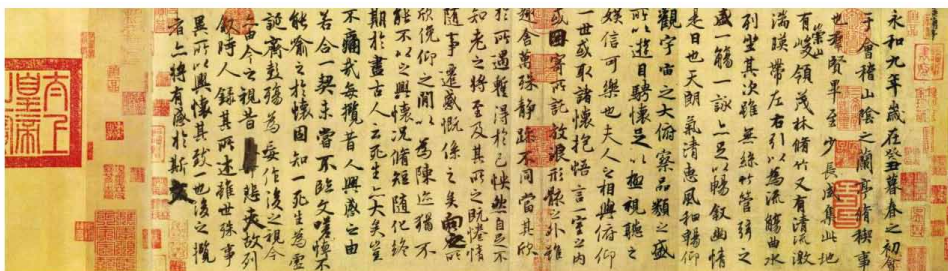 永和九年歲在癸丑暮春之初會
于會稽山陰之蘭亭脩禊事
也羣賢畢至少長咸集此地
有崇山峻領茂林脩竹又有清流激
湍暎帶左右引以為流觴曲水
列坐其次雖無絲竹管弦之
盛一觴一詠亦足以暢叙幽情
是日也天朗氣清惠風和暢仰
觀宇宙之大俯察品類之盛
所以遊目騁懷足以極視聽之
娛信可樂也夫人之相與俯仰
一世或取諸懷抱悟言一室之內
或因寄所託放浪形骸之外雖
趣舍萬殊靜躁不同當其欣
於所遇蹔得於己怏然自足不
知老之將至及其所之既惓情
隨事遷感慨係之矣向之所
欣俛仰之閒以為陳迹猶不
能不以之興懷況脩短隨化終
期於盡古人云死生亦大矣豈
不痛哉每攬昔人興感之由
若合一契未嘗不臨文嗟悼不
能喻之於懷固知一死生為虛
誕齊彭殤為妄作後之視今
亦由今之視昔悲夫故列
敘時人錄其所述雖世殊事
異所以興懷其致一也後之攬
者亦將有感於斯文
太上
皇帝